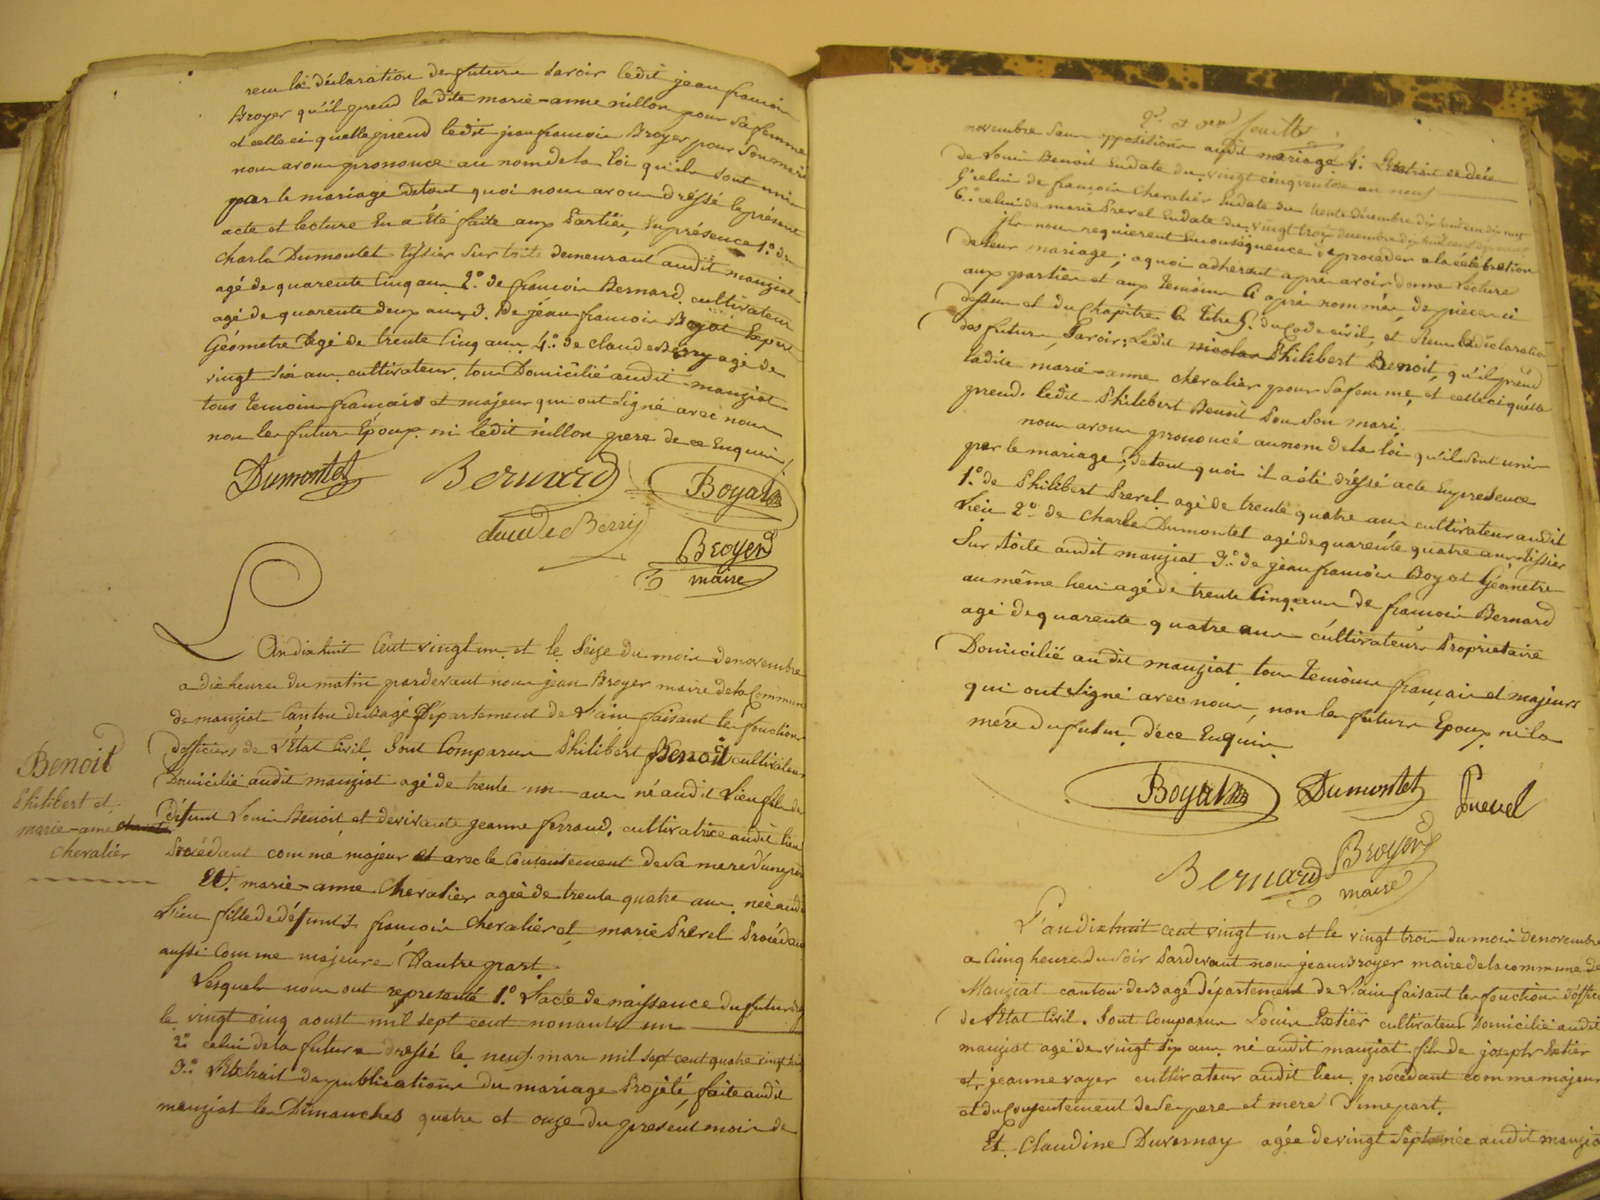 recu la déclaration des futurs Savoir ledit jean francois
Broyer qu'il prend la dite marie-anne nillon pour sa femme
et celle ci quelle prend ledit jean francois Broyer pour Son mari
nous avons prononcé au nom de la loi qu'ils sont unis
par le mariage detout quoi nous avons dréssé le présent
acte et lecture En a Eté faite aux Parties, En présence 1.º de
charles Dumontet tissier Sur toile demeurant audit manziat
agé de quarente Cinq ans 2.º de francois Bernard cultivateur
agé de quarente deux ans 3. De jean francois Boyat Expert
Géometre agé de trente Cinq ans 4.º de claude Berry agé de
vingt six ans cultivateur, tous Domicilié audit manziat
tous temoins francais et majeurs qui ont signé avec nous
non les futurs Epoux ni ledit nillon pere de ce Enquis
Dumontet Bernard Boyat
claude Berry
Broyer
maire
L'An dix huit Cent vingt un et le Seize du mois denovembre
a dix heures du matin pardevant nous jean Broyer maire dela Commune
de manziat Canton de Bagé Département de L'ain faisant les fonctions
d'officier de L'Etat Civil Sont Comparus Philibert Benoit cultivateur
Domicilié audit manziat agé de trente un ans né audit Lieu fils de
défunt Louis Benoit et de vivante jeanne ferrand, cultivatrice audit lieu
Procédant comme majeur et avec le Consentement de Sa mere d'une part
Et marie-anne Chevalier agée de trente quatre ans née audit
Lieu fille de défunts francois Chevalier et marie Prevel Procédant
aussi Comme majeure D'autre part
Benoit
Philibert et
marie-anne
chevalier
Lesquels nous ont représenté 1.º L'acte de naissance du futur
le vingt cinq aoust mil sept cent nonante un
2.º celui dela future dressé le neuf mars mil sept cent quatre vingt
3.º L'Extrait des publications du mariage Projété, faite audit
manziat les Dimanches quatre et onze du present mois de
novembre Sans opposition audit mariage 4.º L'Extrait de décés
de Louis Benoit En date du vingt cinq ventose an neuf
5.º celui de francois Chevalier En date du trente décembre
6.º celui de marie Prevel En date du vingt trois
Ils nous requierent En conséquence de procéder a la célébration
de leur mariage; a quoi adhérant aprés avoir donné lecture
aux parties et aux temoins ci aprés nommés des pièces ci
dessus et du Chapitre 6 titre 5. du Code civil, et Recu la déclaration
des futurs, Savoir; Ledit nicolas Philibert Benoit, qu'il prend
ladite marie-anne chevalier pour sa femme, et celle ci quelle
prend ledit Philibert Benoit Pour Son mari
nous avons prononcé au nom dela loi qu'ils sont unis
par le mariage, Detout quoi il a été dréssé acte En presence
1.º de Philibert Prevel agé de trente quatre ans cultivateur audit
Lieu 2.º de Charles Dumontet agé de quarente quatre ans tissier
Sur toile audit manziat 3.º de jean francois Boyat Géometre
au même lieu agé de trente Cinq ans de francois Bernard
agé de quarente quatre ans cultivateurs Propriétaire
Domicilié audit manziat tous temoins francais et majeurs
qui ont signé avec nous, non les futurs Epoux ni la
mere du futur de ce Enquis
Boyat Dumontet Prevel
Bernard Broyer
maire
L'an dix huit cent vingt un et le vingt trois du mois denovembre
a Cinq heures du Soir Pardevant nous jean Broyer maire dela commune de
Manziat canton de Bagé Département de L'ain faisant les fonctions d'officier
de L'Etat Civil. Sont Comparus Louis cultivateur Domicilié audit
manziat agé de vingt six ans né audit manziat fils de joseph
et jeanne rayer cultivateur audit lieu procédant comme majeur
et du Consentement de Ses pere et mere D'une part.
Et Claudine Duvernay agée de vingt Sept née audit manziat